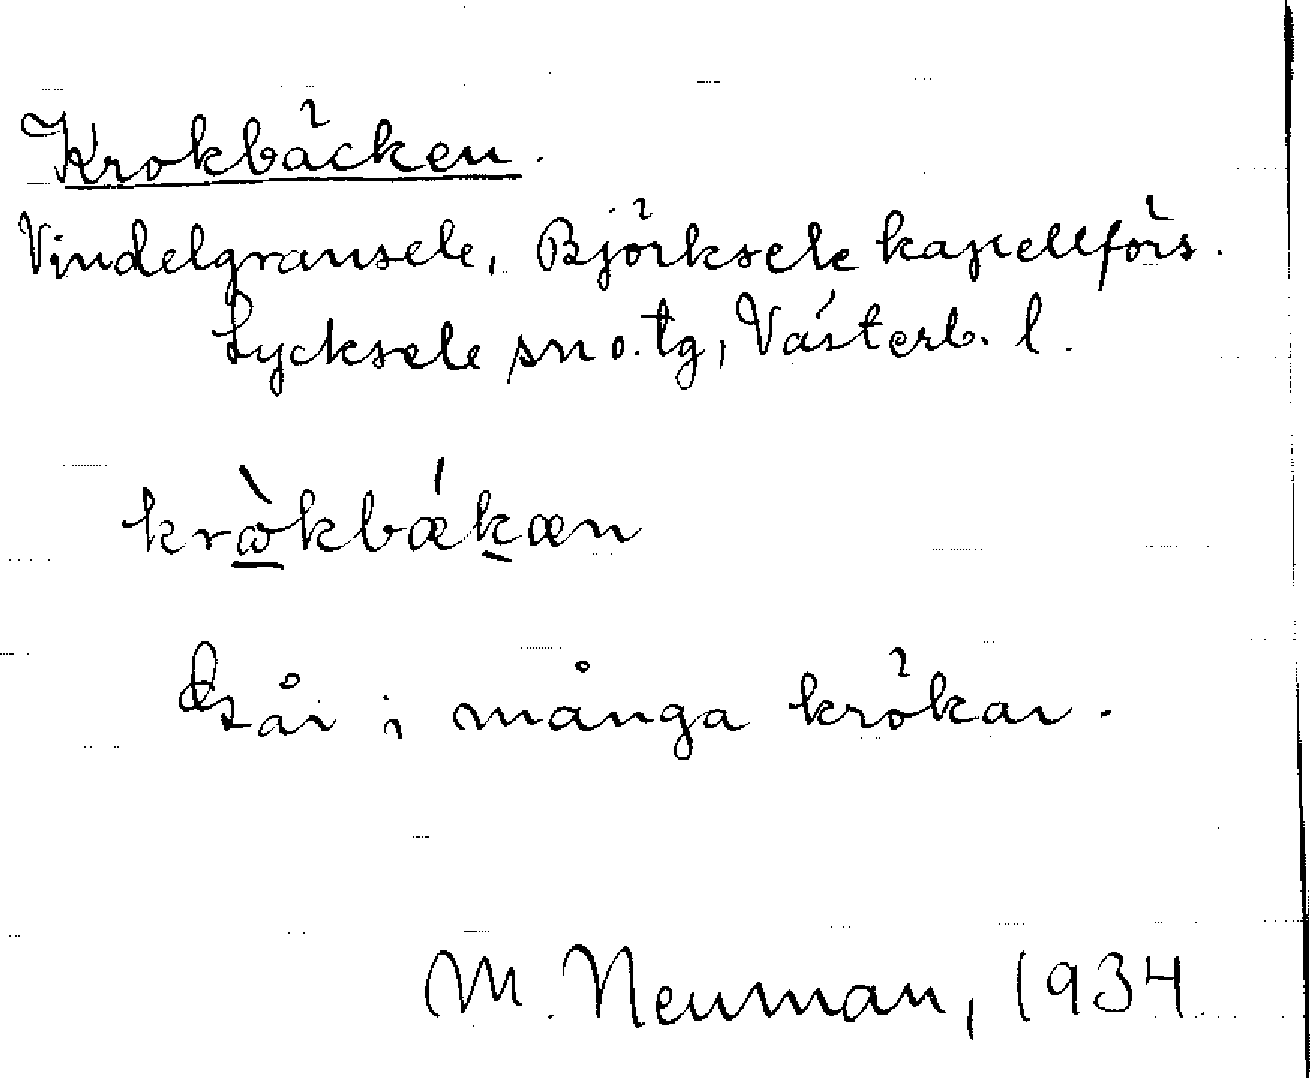 Krokbäcken.
Vindelgransele, Björksele kapellförs.
Lycksele sn o. tg, Västerb. l.
krὼkbǽkæn
Går i många krökar.
M. Neuman, 1934.